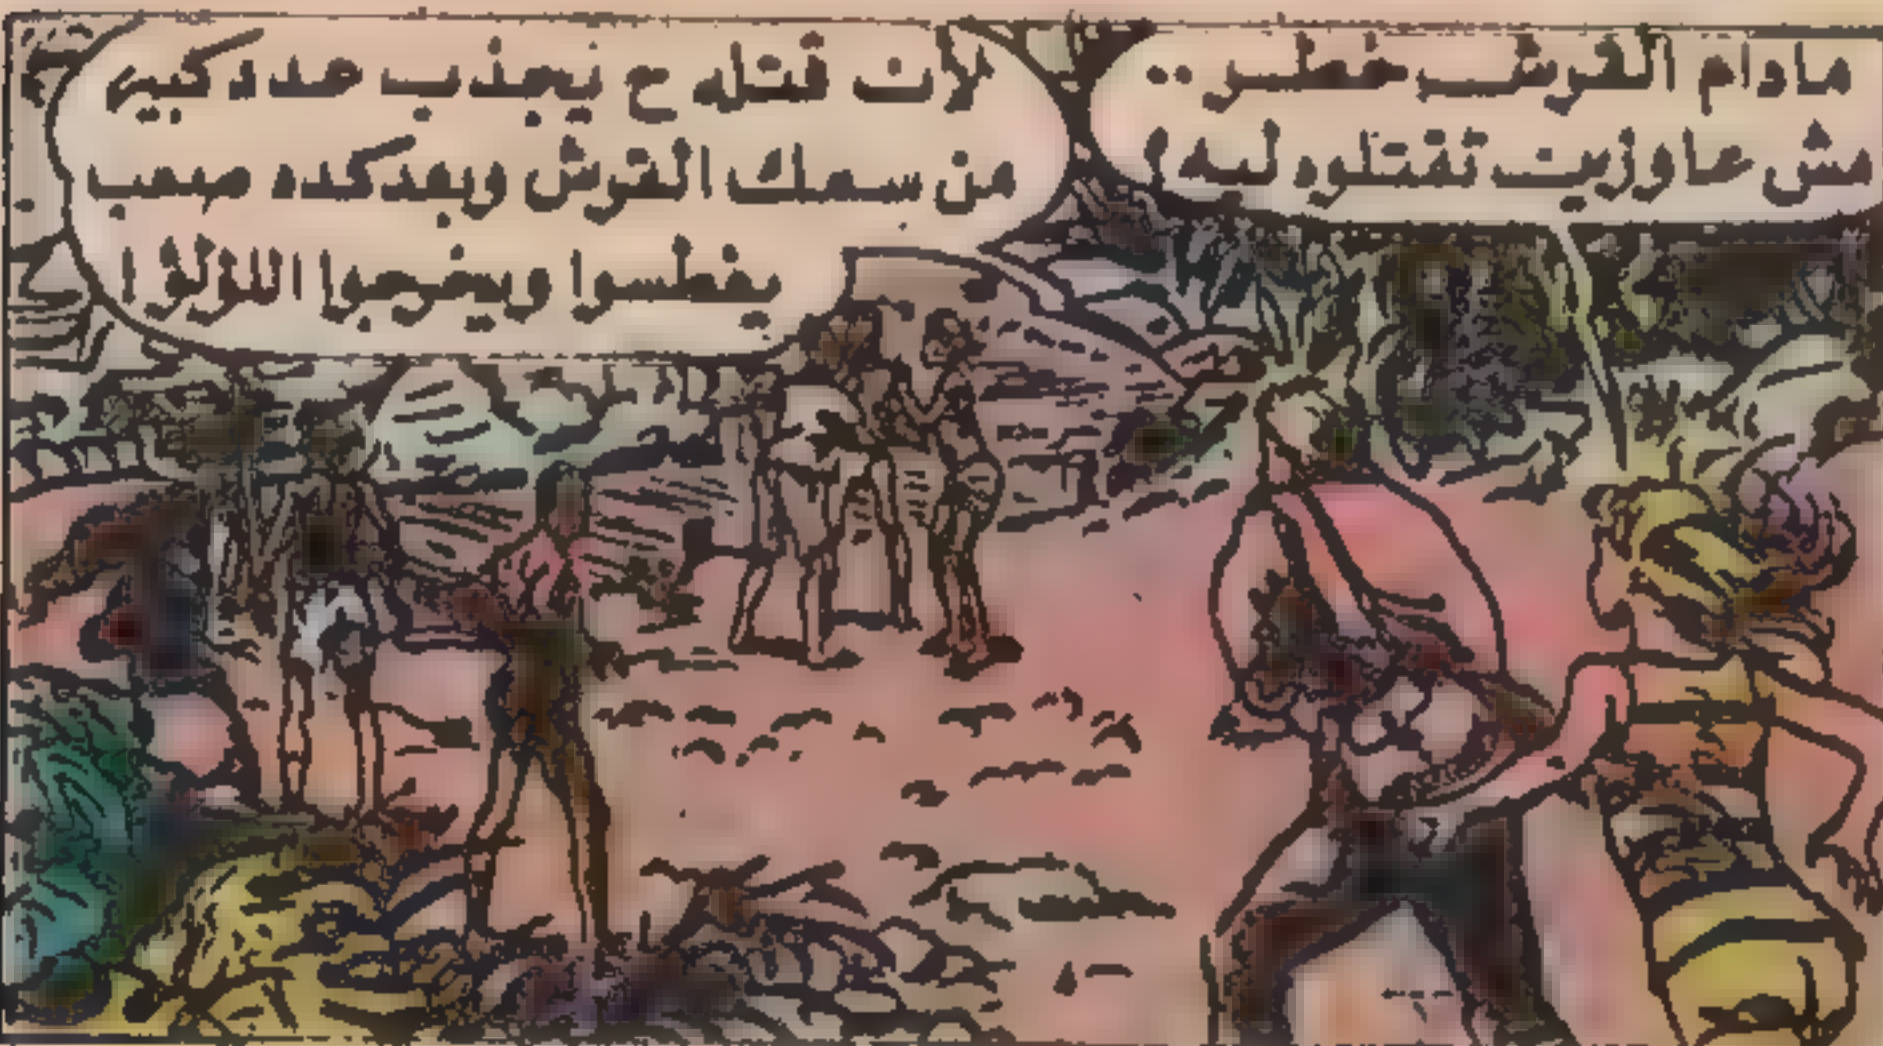 مادام القرش خطر ..
مش عاوزين تقتلوه ليه؟
لان قتله ح يجذب عدد كبير
من سمك القرش وبعد كده صعب
يغطسوا ويخرجوا اللؤلؤ !